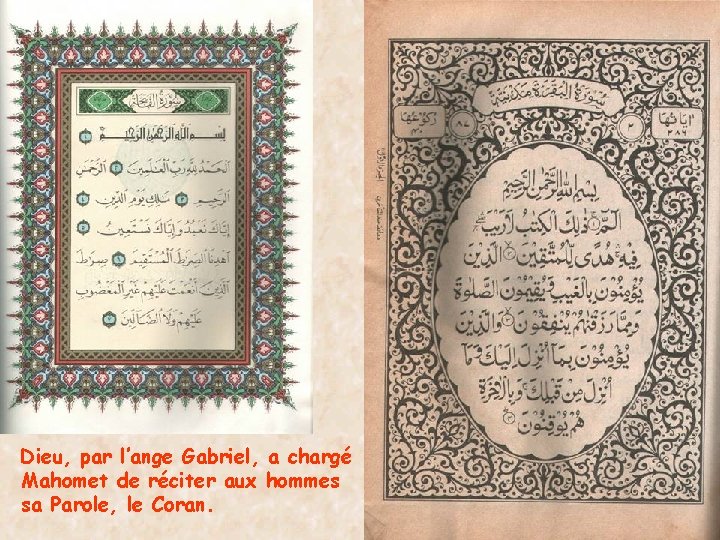 سورة الفاتحة
بسم الله الرحمن الرحيم ١
الحمد لله رب العلمين ٢ الرحمن
الرحيم ٣ ملك يوم الدين ٤
إياك نعبد وإياك نستعين ٥
اهدنا الصرط المستقيم ٦ صرط
الذين أنعمت عليهم غير المغضوب
عليهم ولا الضالين ٧
Dieu, par l’ange Gabriel, a chargé
Mahomet de réciter aux hommes
sa Parole, le Coran.
سورة البقرة مدنية
اياتها ٢٨٦
٢
٨٧
ركوعها ٤٠
بسم الله الرحمن الرحيم
الم ١ ذلك الكتب لا ريب
فيه هدى للمتقين ٢ الذين
يؤمنون بالغيب ويقيمون الصلوة
ومما رزقنهم ينفقون ٣ والذين
يؤمنون بما أنزل إليك وما
أنزل من قبلك وبالآخرة
هم يوقنون ٤